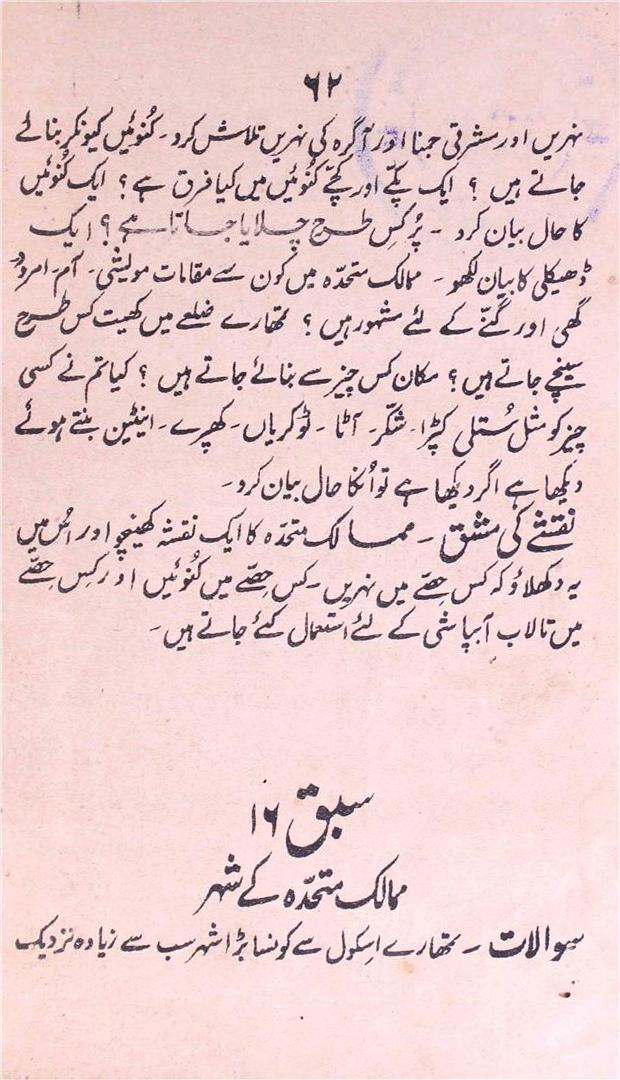 ۶۲
نہریں اور مشرقی جمنا اور آگرہ کی نہریں تلاش کرو ۔ کُنوئیں کیونکر بنائے
جاتے ہیں ؟ ایک پکّے اور کچّے کُنوئیں میں کیا فرق ہے ؟ ایک کُنوئیں
کا حال بیان کرو ۔ پُر کِس طرح چلایا جاتا ہے ؟ ایک
ڈھیکلی کا بیان لکھو ۔ ممالک متحدّہ میں کون سے مقامات مویشی ۔ آم ۔ امرود
گھی اور گنّے کے لئے مشہور ہیں ؟ تمھارے ضلعے میں کھیت کس طرح
سینچے جاتے ہیں ؟ مکان کس چیز سے بنائے جاتے ہیں ؟ کیا تم نے کسی
چیز کو مثل سُتلی کپڑا ۔ شکّر ۔ آٹا ۔ ٹوکریاں ۔ کھپرے ۔ اینٹین بنتے ہوئے
دیکھا ہے اگر دیکھا ہے تو اُنکا حال بیان کرو ۔
نقشے کی مشق ۔ ممالک متحدّہ کا ایک نقشہ کھینچو اور اُس میں
یہ دکھلاؤ کہ کس حصّے میں نہریں ۔ کس حصّے میں کُنوئیں اور کِس حصّے
میں تالاب آبپاشی کے لئے استعمال کئے جاتے ہیں ۔
سبق ۱۶
ممالک متحدّہ کے شہر
سوالات ۔ تمھارے اِسکول سے کونسا بڑا شہر سب سے زیادہ نزدیک